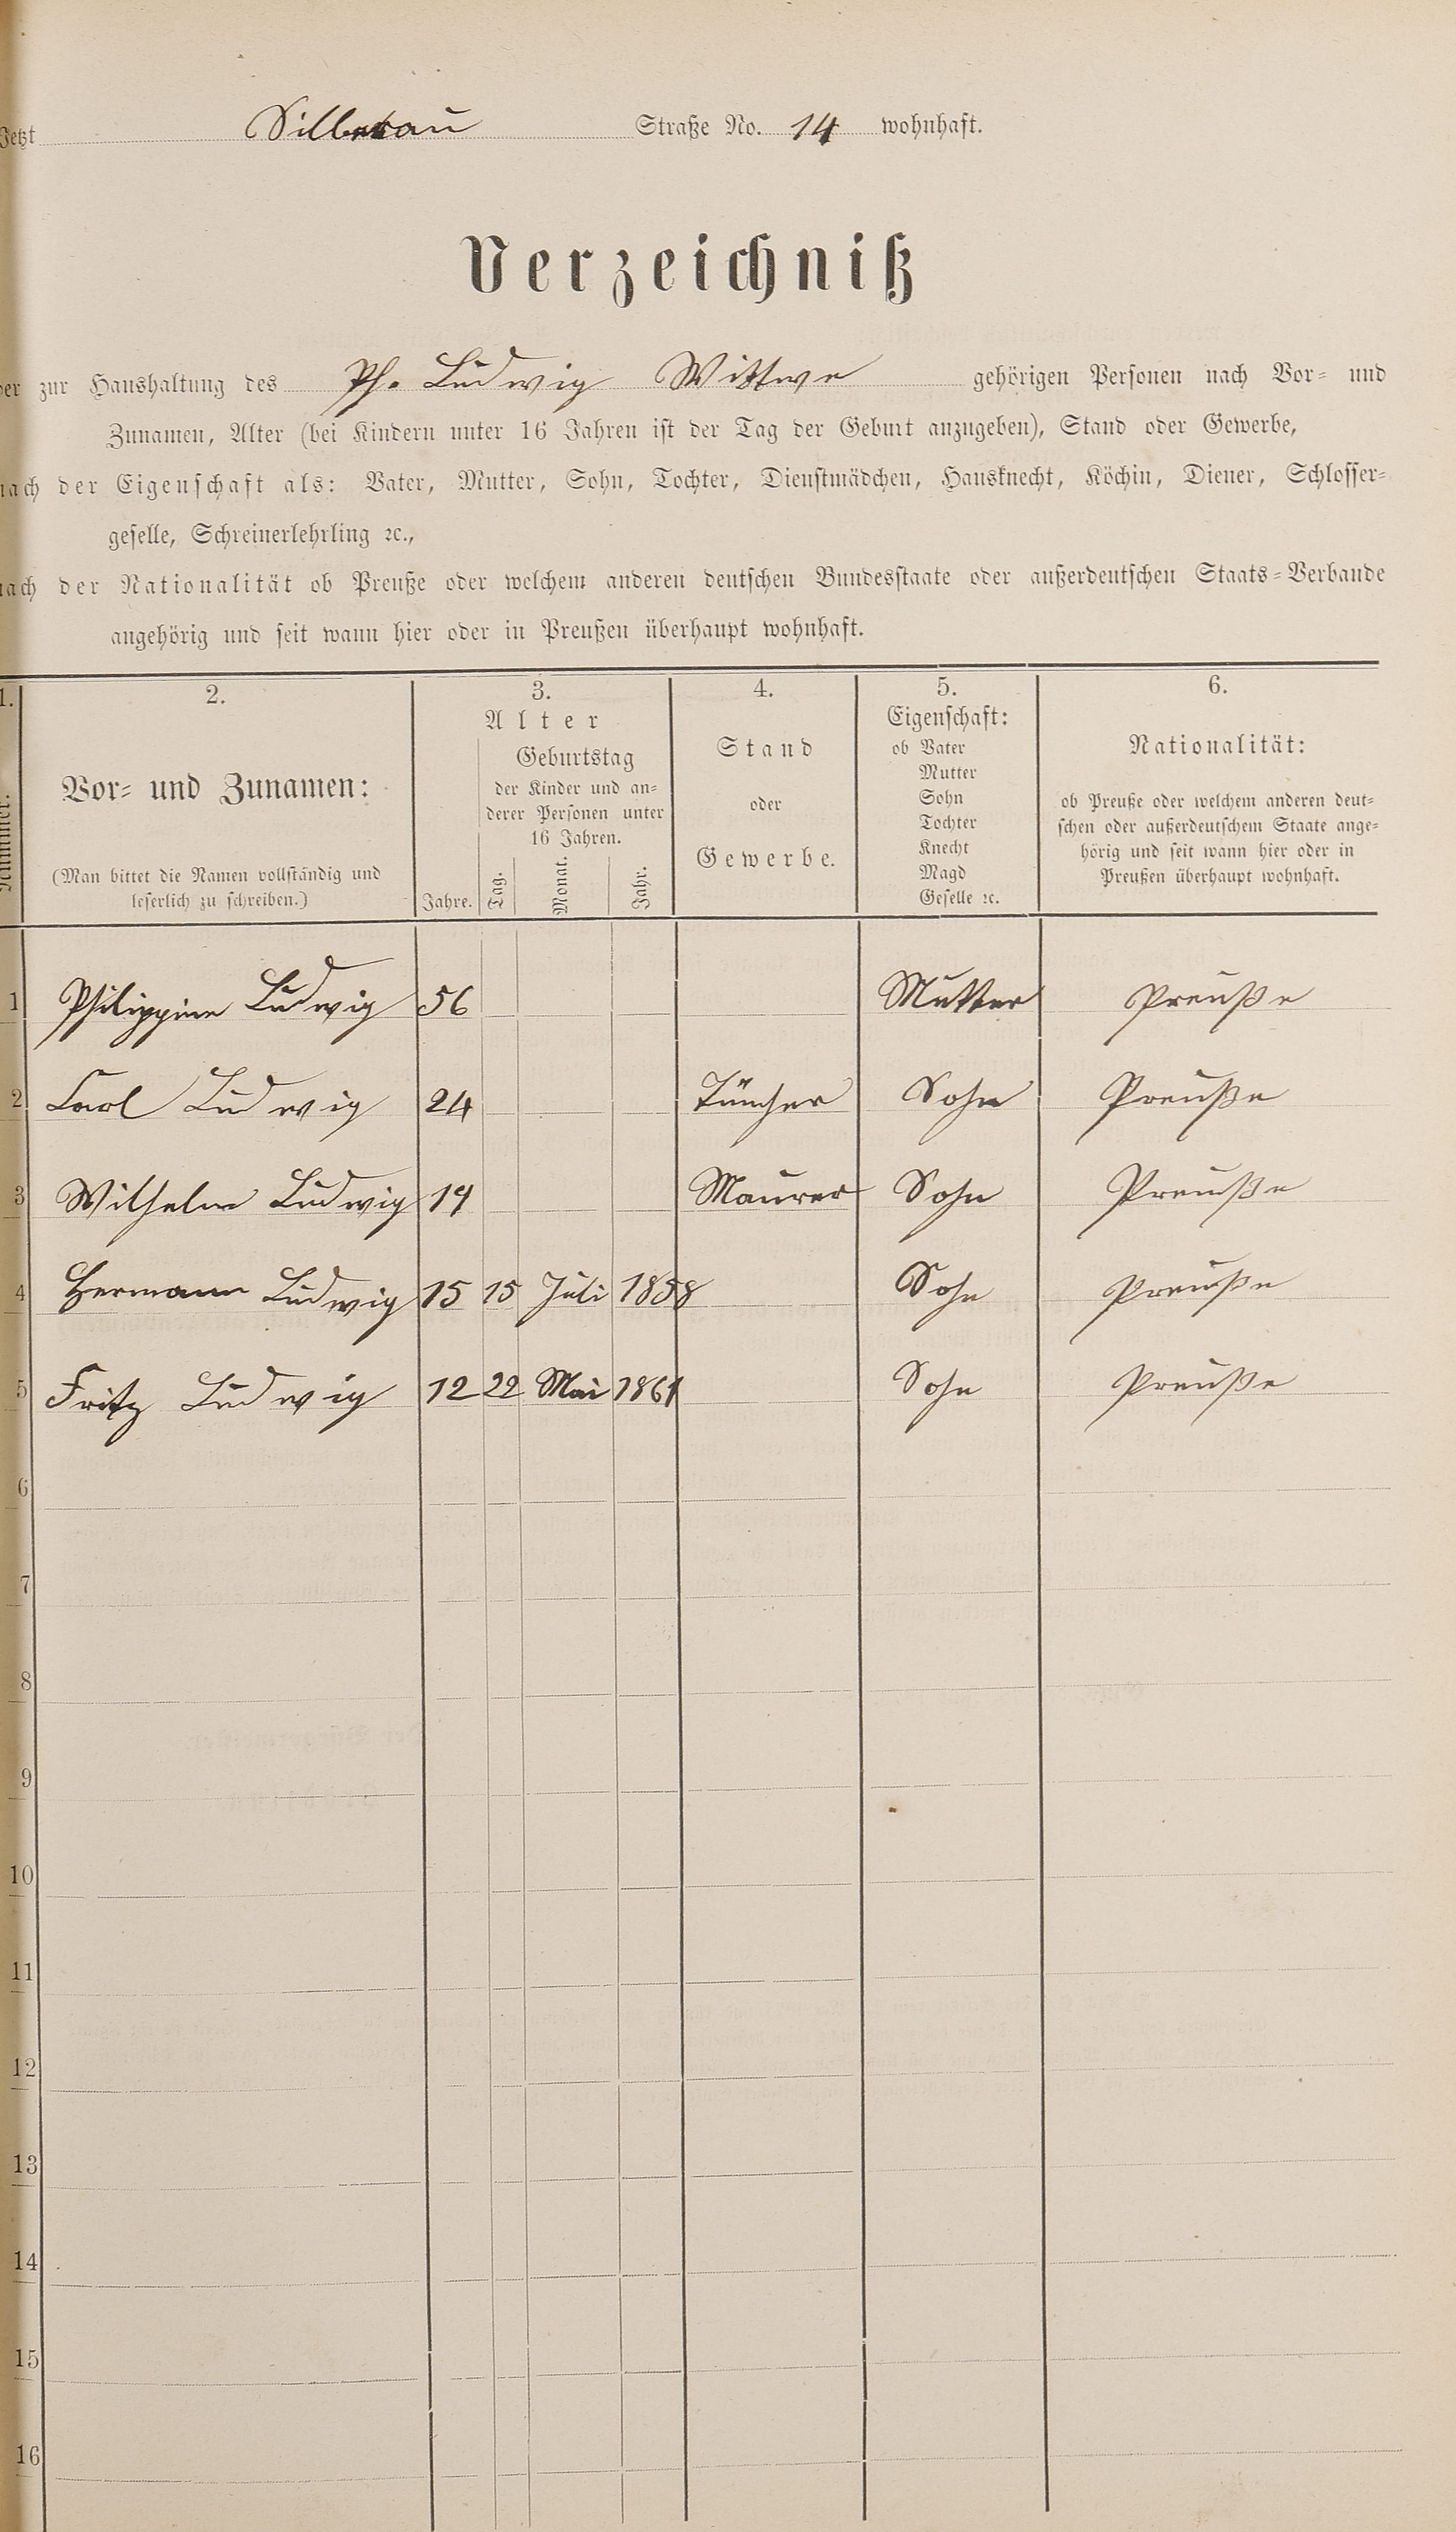 Jetzt Straße No. 14 wohnhaft.
Verzeichniß
der zur Haushaltung des Ph. Ludwig Wittwe gehörigen Personen nach Vor- und
Zunamen, Alter (bei Kindern unter 16 Jahren ist der Tag der Geburt anzugeben), Stand oder Gewerbe,
nach der Eigenschaft als: Vater, Mutter, Sohn, Tochter, Dienstmädchen, Hausknecht, Köchin, Diener, Schlosser-
geselle, Schreinerlehrling ꝛc.,
nach der Nationalität ob Preuße oder welchem anderen deutschen Bundesstaate oder außerdeutschen Staats-Verbande
angehörig und seit wann hier oder in Preußen überhaupt wohnhaft.
1. 2. 3. 4. 5. 6.
Nummer.
Vor- und Zunamen:
(Man bittet die Namen vollständig und
leserlich zu schreiben.)
Alter
Jahre.
Geburtstag
der Kinder und an-
derer Personen unter
16 Jahren.
Tag. Monat. Jahr.
Stand
oder
Gewerbe.
Eigenschaft:
ob Vater
Mutter
Sohn
Tochter
Knecht
Magd
Geselle ꝛc.
Nationalität:
ob Preuße oder welchem anderen deut-
schen oder außerdeutschem Staate ange-
hörig und seit wann hier oder in
Preußen überhaupt wohnhaft.
1 Philippine Ludwig 56 Mutter Preuße
2 Carl Ludwig 24 Tüncher Sohn Preuße
3 Wilhelm Ludwig 19 Maurer Sohn Preuße
4 Hermann Ludwig 15 15 Juli 1858 Sohn Preuße
5 Fritz Ludwig 12 22 Mai 1861 Sohn Preuße
6
7
8
9
10
11
12
13
14
15
16